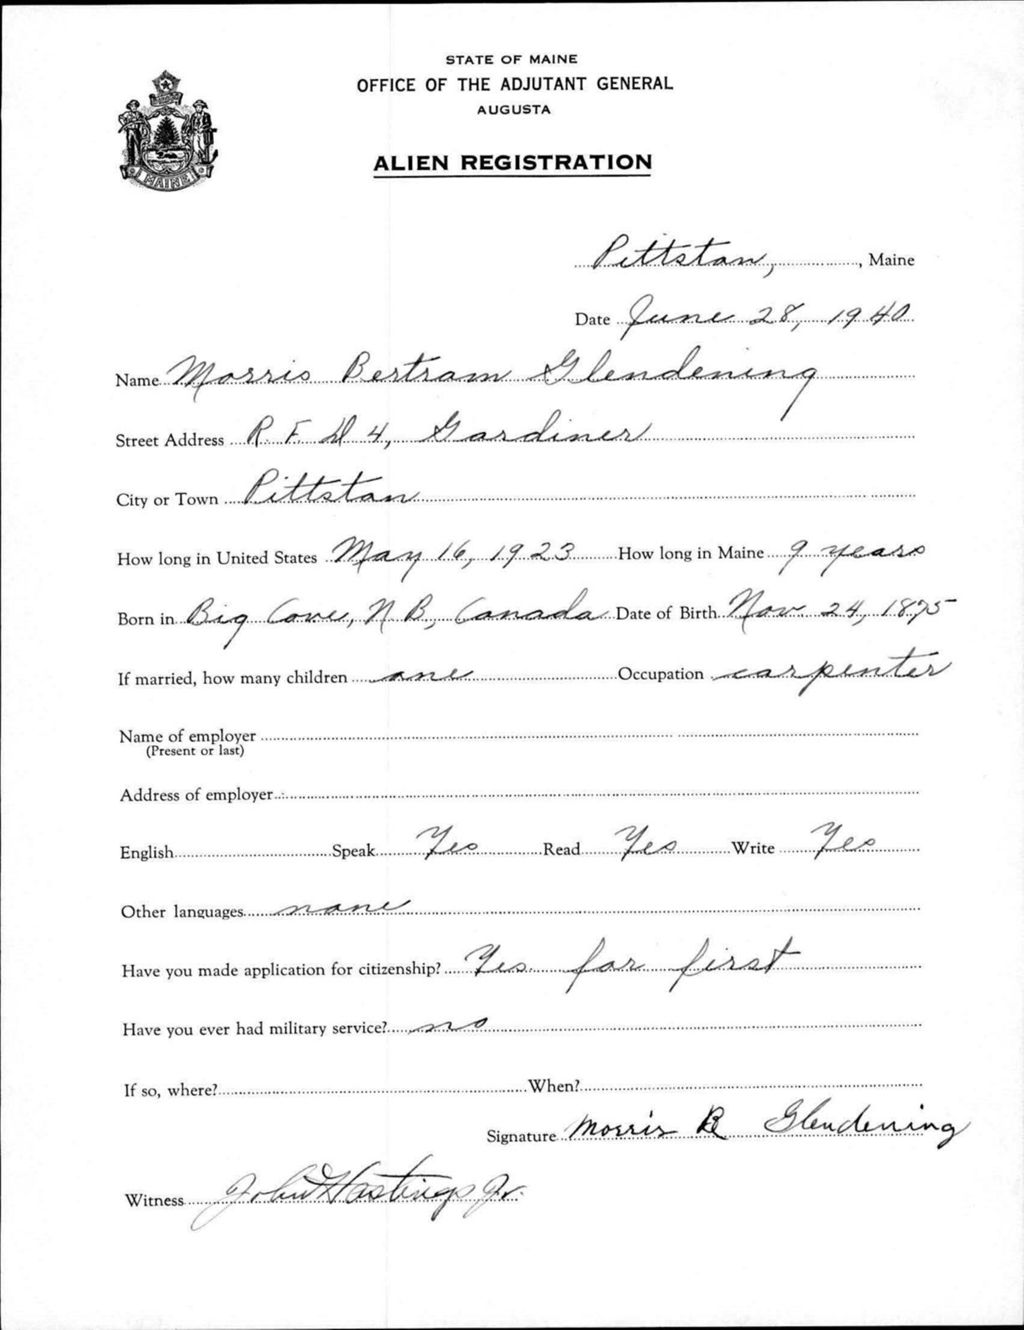 STATE OF MAINE
OFFICE OF THE ADJUTANT GENERAL
AUGUSTA
ALIEN REGISTRATION
MAINE
Pittston, , Maine
Date June 28, 1940
Name Morris Bertram Glendening
Street Address R. F. D 4, Gardiner
City or Town Pittston
How long in United States May 16, 1923 How long in Maine 9 years
Born in Big Cove, N. B., Canada Date of Birth Nov 24, 1875
If married, how many children one Occupation carpenter
Name of employer
(Present or last)
Address of employer
English Speak Yes Read Yes Write Yes
Other languages none
Have you made application for citizenship? Yes for first
Have you ever had military service? no
If so, where? When?
Signature Morris B Glendening
Witness John Hastings Jr.